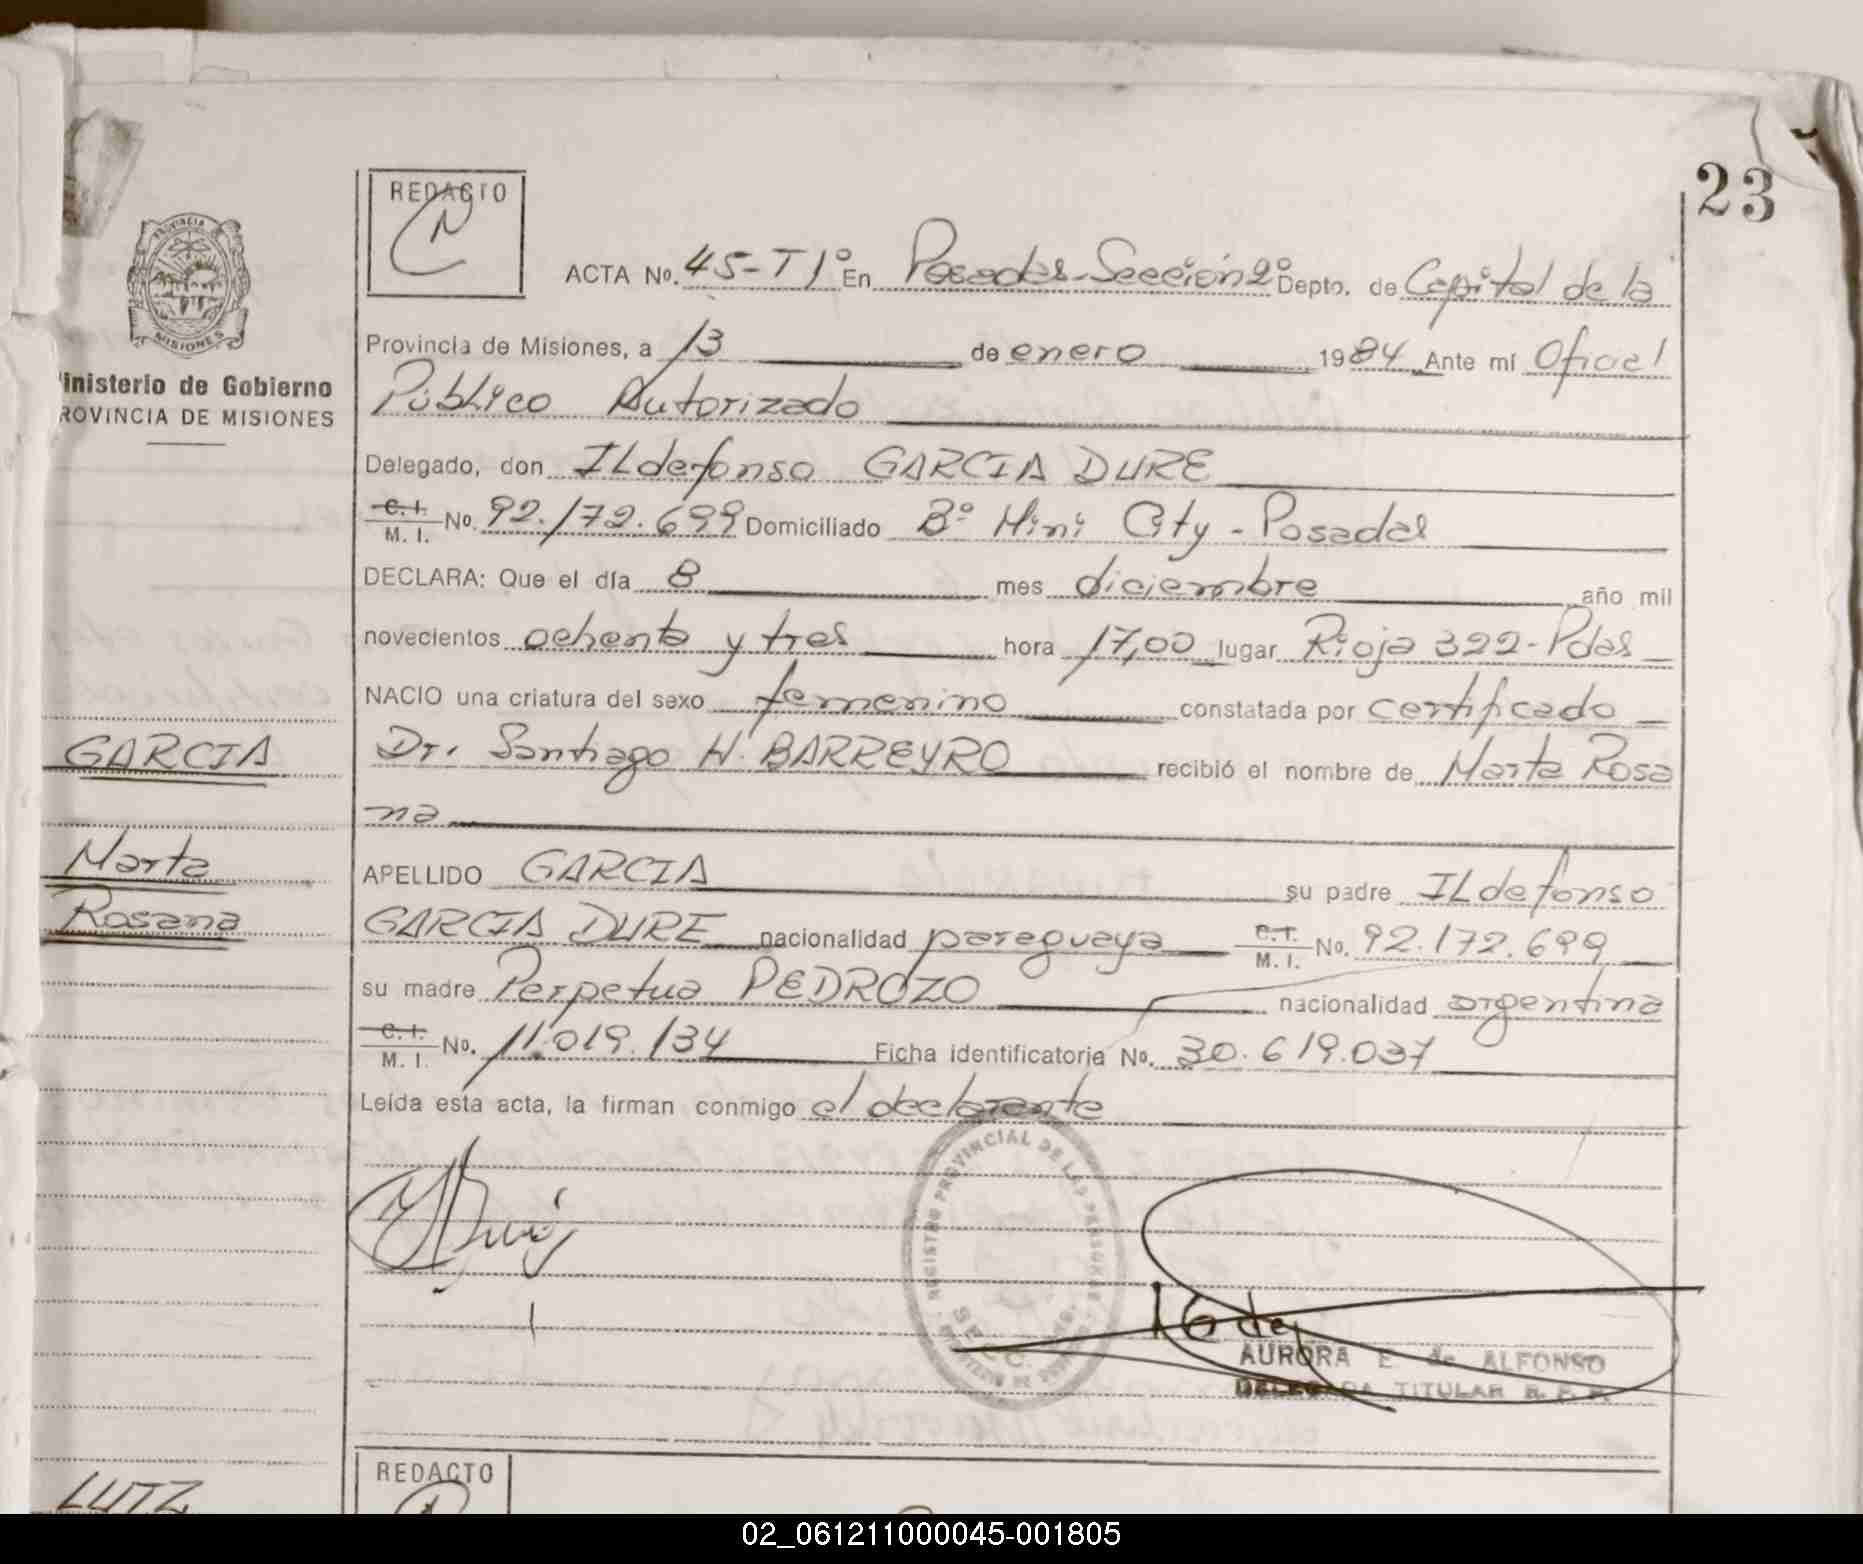 23
REDACTO
ACTA No. 45-T1º En Posadas-Sección 2º Depto. de Capital de la
Provincia de Misiones, a 13 de enero 1984 Ante mí Oficial
PROVINCIA
MISIONES
inisterio de Gobierno
ROVINCIA DE MISIONES
Público Autorizado
Delegado, don ILdefonso GARCIA DURE
C.I. M.I. No. 92.172.699 Domiciliado Bº Mini City - Posadas
DECLARA: Que el día 8 mes diciembre año mil
novecientos ochenta y tres hora 17,00 lugar Rioja 322-Pdas
NACIO una criatura del sexo femenino constatada por certificado
GARCIA
Dr. Santiago H. BARREYRO recibió el nombre de Marta Rosa
na
Marta
Rosana
APELLIDO GARCIA su padre ILdefonso
GARCIA DURE nacionalidad paraguaya C.I. M.I. No. 92.172.699
su madre Perpetua PEDROZO nacionalidad argentina
C.I. M.I. No. 11.019.134 Ficha identificatoria No. 30.619.037
Leída esta acta, la firman conmigo el declarante
REGISTRO PROVINCIAL DE LAS PERSONAS
AURORA E. de ALFONSO
DELEGADA TITULAR R. P. P.
LUTZ
REDACTO
02_061211000045-001805